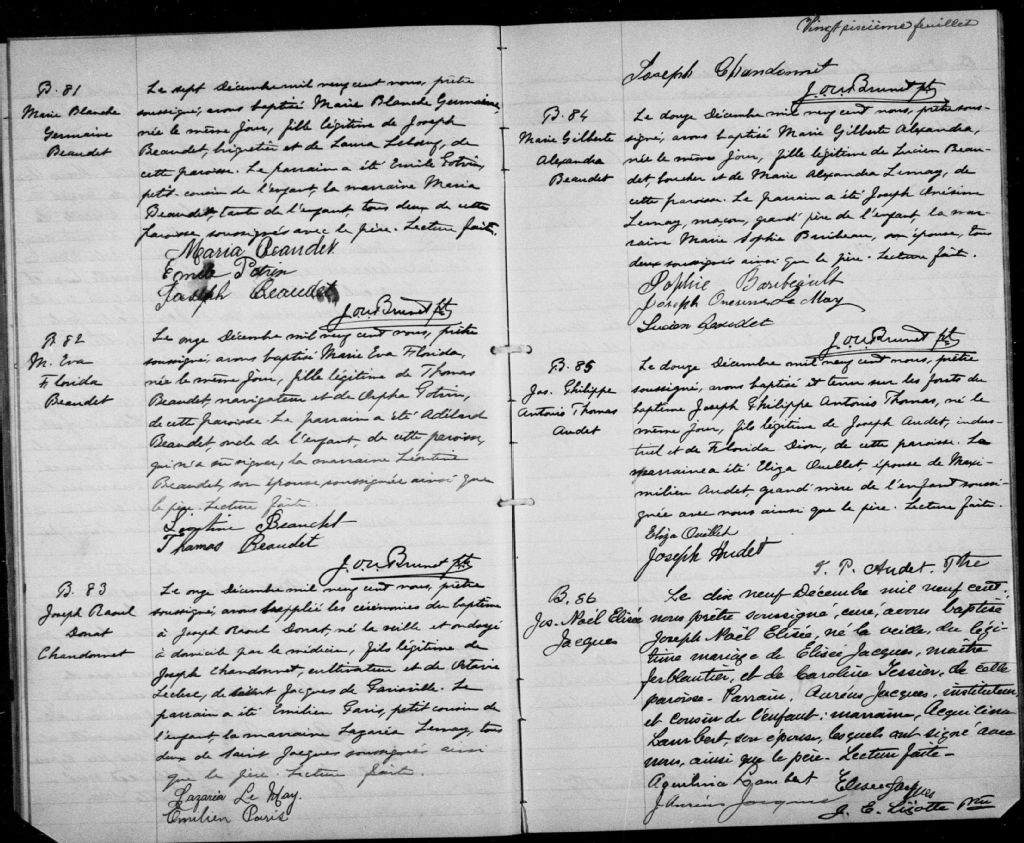 B. 81
Marie Blanche
Germaine
Beaudet
Le sept Décembre mil neuf cent nous, prêtre
soussigné, avons baptisé Marie Blanche Germaine,
née le même jour, fille légitime de Joseph
Beaudet, briquetier et de Laura Lebeuf, de
cette paroisse. Le parrain a été Emile Potvin,
petit-cousin de l'enfant, la marraine Maria
Beaudet, tante de l'enfant, tous deux de cette
paroisse soussignés avec le père. Lecture faite.
Maria Beaudet
Emile Potvin
Joseph Beaudet
J. O. V. Brunet ptr
B. 82
M. Eva
Florida
Beaudet
Le onze Décembre mil neuf cent nous, prêtre
soussigné, avons baptisé Marie Eva Florida,
née le même jour, fille légitime de Thomas
Beaudet, navigateur et de Orpha Potvin,
de cette paroisse. Le parrain a été Adélard
Beaudet, oncle de l'enfant, de cette paroisse,
qui n'a su signer, la marraine Léontine
Beaudet, son épouse, soussignée ainsi que
le père. Lecture faite.
Léontine Beaudet
Thomas Beaudet
J. O. V. Brunet ptr
B. 83
Joseph Raoul
Donat
Chandonnet
Le onze Décembre mil neuf cent nous, prêtre
soussigné, avons suppléé les cérémonies du baptême
à Joseph Raoul Donat, né la veille et ondoyé
à domicile par le médecin, fils légitime de
Joseph Chandonnet, cultivateur et de Victoria
Leclerc, de Saint Jacques de Parisville. Le
parrain a été Emilien Paris, petit cousin de
l'enfant, la marraine Lazaria Lemay, tous
deux de Saint Jacques soussignés ainsi
que le père. Lecture faite.
Lazaria Le May.
Emilien Paris
Vingt sixième feuillet
Joseph Chandonnet
J. O. V. Brunet ptr
B. 84
Marie Gilberte
Alexandra
Beaudet
Le douze Décembre mil neuf cent nous, prêtre sous-
signé, avons baptisé Marie Gilberte Alexandra,
née le même jour, fille légitime de Lucien Beau-
det, boucher et de Marie Alexandra Lemay, de
cette paroisse. Le parrain a été Joseph Onésime
Lemay, maçon, grand'père de l'enfant, la mar-
raine Marie Sophie Baribeau, son épouse, tous
deux soussignés ainsi que le père. Lecture faite.
Sophie Baribeault
Joseph Onesime Le May
Lucien Beaudet
J. O. V. Brunet ptr
B. 85
Jos. Philippe
Antonio Thomas
Audet
Le douze Décembre mil neuf cent nous, prêtre
soussigné, avons baptisé et tenu sur les fonts du
baptême Joseph Philippe Antonio Thomas, né le
même jour, fils légitime de Joseph Audet, indus-
triel et de Florida Dion, de cette paroisse. La
marraine a été Eliza Ouellet, épouse de Maxi-
milien Audet, grand'mère de l'enfant soussi-
gnée avec nous ainsi que le père. Lecture faite.
Eliza Ouellet
Joseph Audet
J. P. Audet Ptre
B. 86
Jos. Noël Elisée
Jacques
Le dix neuf Décembre mil neuf cent,
nous prêtre soussigné, curé, avons baptisé
Joseph Noël Elisée, né la veille, du légi-
time mariage de Elisée Jacques, maître
ferblantier, et de Caroline Tessier, de cette
paroisse. Parrain, Aurèus Jacques, instituteur,
et cousin de l'enfant; marraine, Acquilina
Lambert, son épouse, lesquels ont signé avec
nous, ainsi que le père. Lecture faite.
Aquilina Lambert
Jacques
Elisée Jacques
J. E. Lizotte Ptre